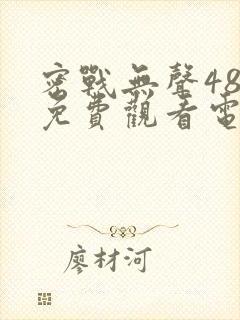 密戰無聲48
免費觀看電
廖材河